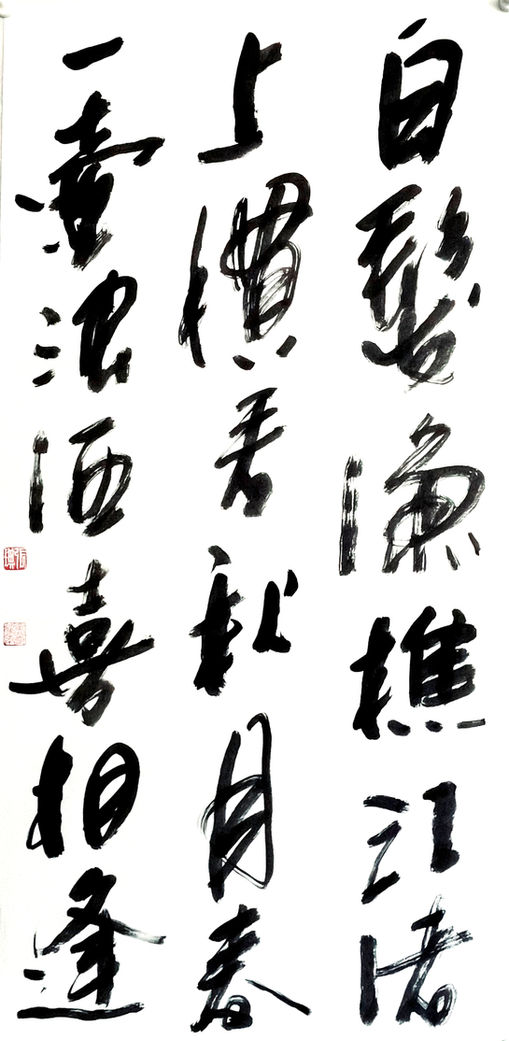 白髮漁樵江渚
上慣看秋月春
一壺濁酒喜相逢